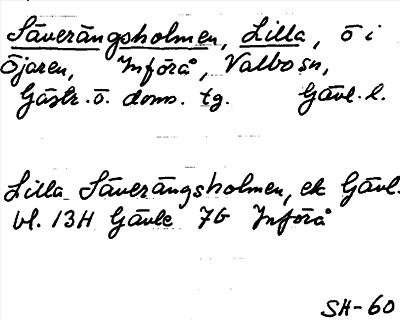 Säverängsholmen, Lilla, ö i
Öjaren, Införå, Valbo sn,
Gästr. ö. doms. tg. Gävl. l.
Lilla Säverängsholmen, ek Gävl.
bl. 13H Gävle 7G Införå
SH-60